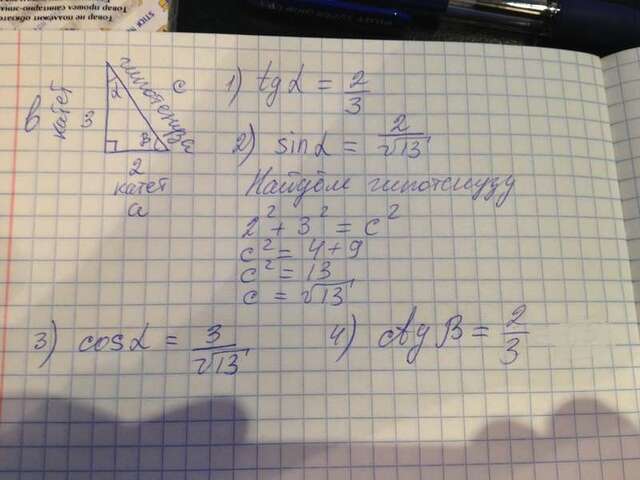 Товар не подлежит обязате
Товар прошел санитарно-эпиде
в катет 3
гипотенуза c
α
β
2
катет
a
1) tg α = 2/3
2) sin α = 2/√13
Найдём гипотенузу
2² + 3² = c²
c² = 4 + 9
c² = 13
c = √13
3) cos α = 3/√13
4) ctg β = 2/3